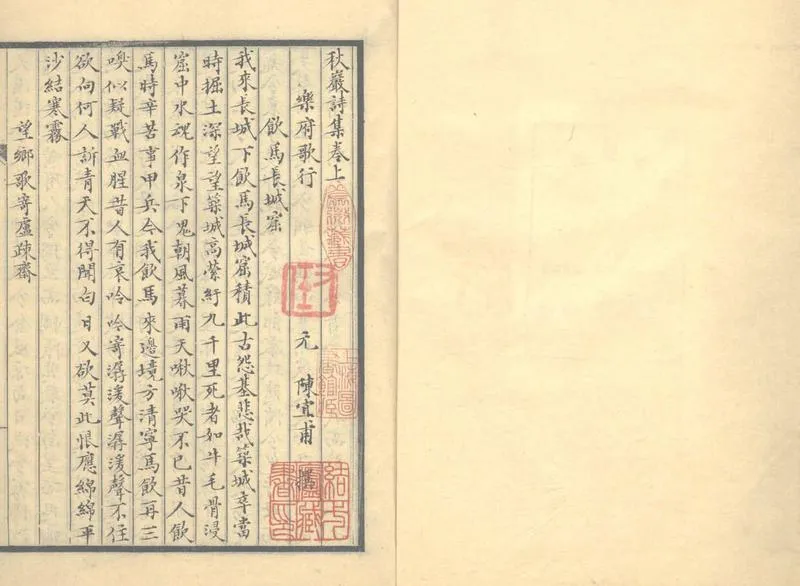 秋巖詩集卷上
樂府歌行 元 陳宜甫 撰
飲馬長城窟
我來長城下飲馬長城窟積此古怨基悲哉築城卒當
時掘土深望望築城高縈紆九千里死者如牛毛骨浸
窟中水魂作泉下鬼朝風暮雨天啾啾哭不已昔人飲
馬時辛苦事甲兵今我飲馬來邊境方清寧馬飲再三
嗅似疑戰血腥昔人有哀吟吟寄潺湲聲潺湲聲不住
欲向何人訴青天不得聞白日又欲莫此恨應綿綿平
沙結寒霧
望鄉歌寄盧疎齋